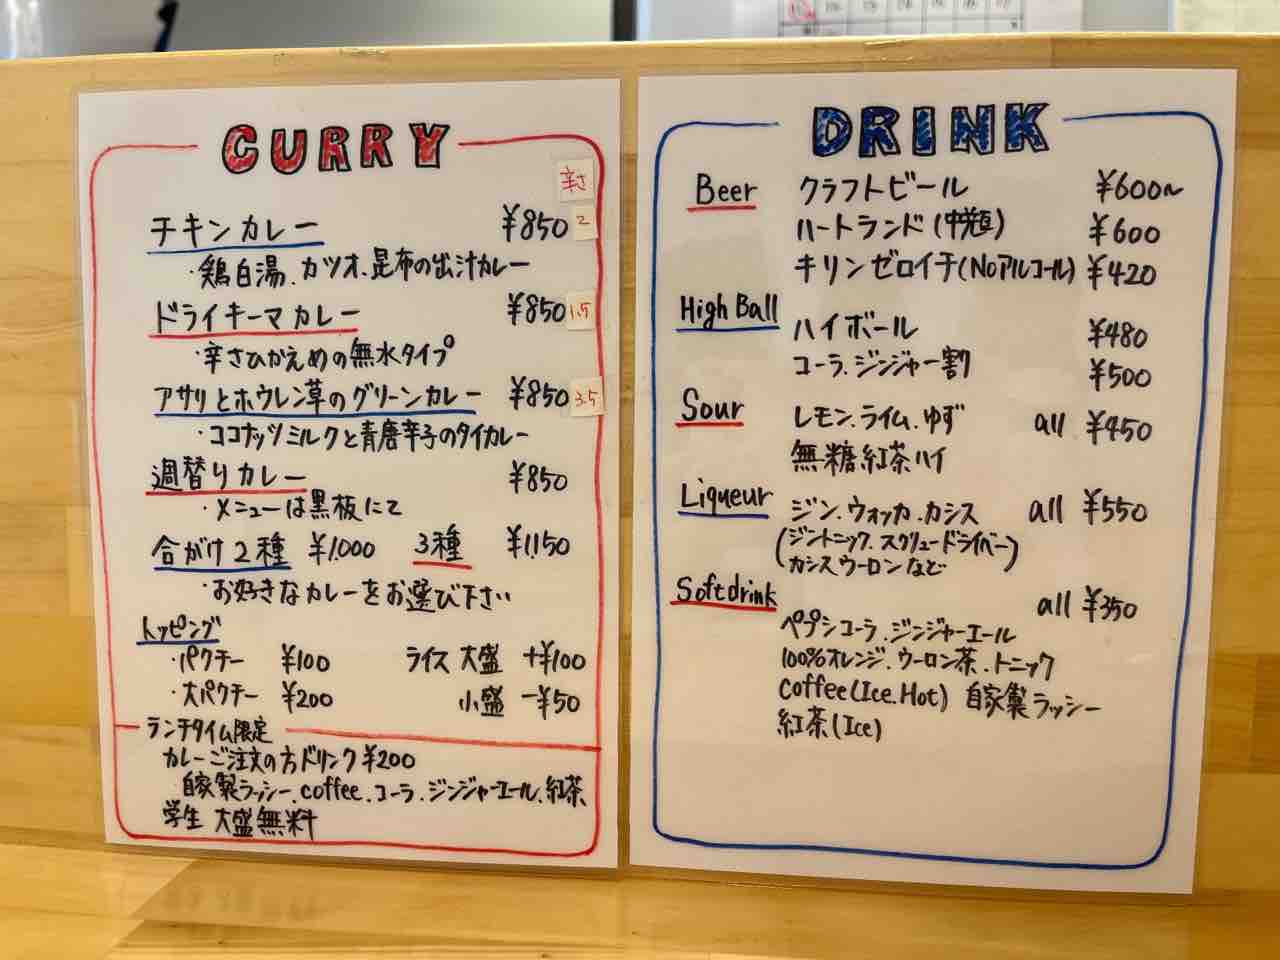 CURRY
辛さ
チキンカレー ¥850 2
・鶏白湯、カツオ、昆布の出汁カレー
ドライキーマカレー ¥850 1.5
・辛さひかえめの無水タイプ
アサリとホウレン草のグリーンカレー ¥850 3.5
・ココナッツミルクと青唐辛子のタイカレー
週替りカレー ¥850
・メニューは黒板にて
合がけ2種 ¥1,000 3種 ¥1,150
・お好きなカレーをお選び下さい
トッピング
・パクチー ¥100 ライス 大盛 +¥100
・大パクチー ¥200 小盛 -¥50
ランチタイム限定
カレーご注文の方ドリンク¥200
自家製ラッシー、coffee、コーラ、ジンジャーエール、紅茶
学生 大盛無料
DRINK
Beer クラフトビール ¥600〜
ハートランド(中瓶) ¥600
キリンゼロイチ(Noアルコール) ¥420
High Ball ハイボール ¥480
コーラ、ジンジャー割 ¥500
Sour レモン、ライム、ゆず all ¥450
無糖紅茶ハイ
Liqueur ジン、ウォッカ、カシス all ¥550
(ジントニック、スクリュードライバー)
カシスウーロンなど
Softdrink all ¥350
ペプシコーラ、ジンジャーエール
100%オレンジ、ウーロン茶、トニック
coffee(Ice.Hot) 自家製ラッシー
紅茶(Ice)